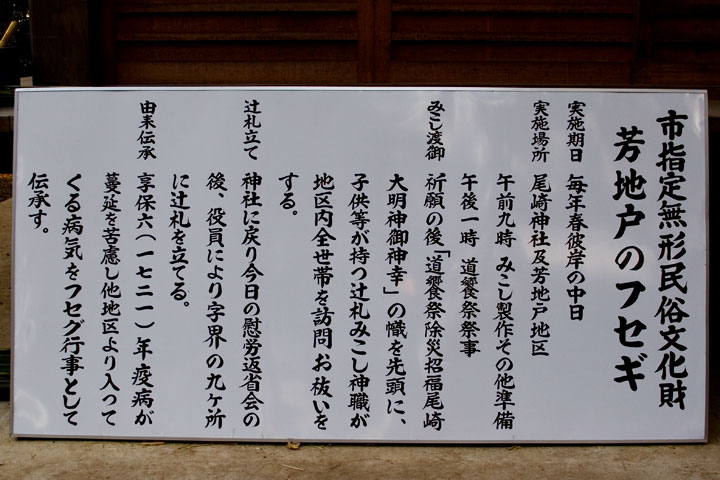 市指定無形民俗文化財
芳地戸のフセギ
実施期日 毎年春彼岸の中日
実施場所 尾崎神社及芳地戸地区
午前九時 みこし製作その他準備
午後一時 道饗祭祭事
みこし渡御 祈願の後「道饗祭除災招福尾崎
大明神御神幸」の幟を先頭に、
子供等が持つ辻札みこし神職が
地区内全世帯を訪問お祓いを
する。
辻札立て 神社に戻り今日の慰労返省会の
後、役員により字界の九ヶ所
に辻札を立てる。
由来伝承 享保六(一七二一)年疫病が
蔓延を苦慮し他地区より入って
くる病気をフセグ行事として
伝承す。